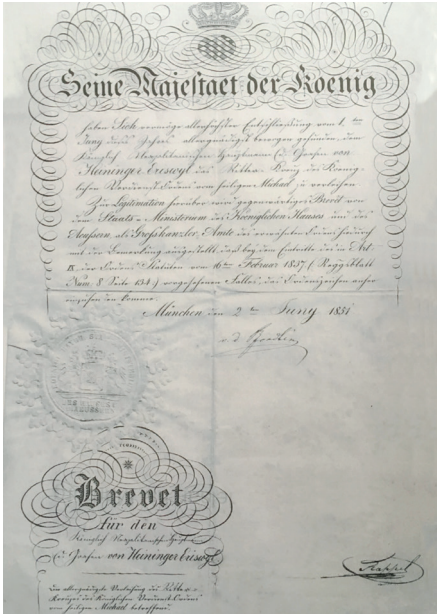 Seine Majestaet der Koenig
haben Sich vermöge allerhöchster Entschließung vom 1. ten
Juny dieses Jahres allergnädigst bewogen gefunden, dem
Königlich Neapolitanischen Hauptmann C. Grafen von
das Ritter-Kreuz des Koenig-
lichen Verdienst Ordens vom heiligen Michael zu verleihen.
Zur Legitimation hierüber wird gegenwärtiges Brevet von
dem Staats-Ministerium des Koeniglichen Hauses und des
Aeußern, als Großkanzler-Amte des erwähnten Ordens hiedurch
mit der Bemerkung ausgestellt, daß bey dem Eintritte des in Art
IX der Ordens Statuten vom 16ten Februar 1837 (Reggsblatt
Num 8 Seite 134:) vorgesehenen Falles, das Ordenszeichen anher
einzusenden komme.
München den 2 ten Juny 1851
Brevet
für den
Königlich Neapolitanischen
C. Grafen von
Die allergnädigste Verleihung des Ritter
Kreuzes des Königlichen Verdienst Ordens
vom heiligen Michael betreffend.